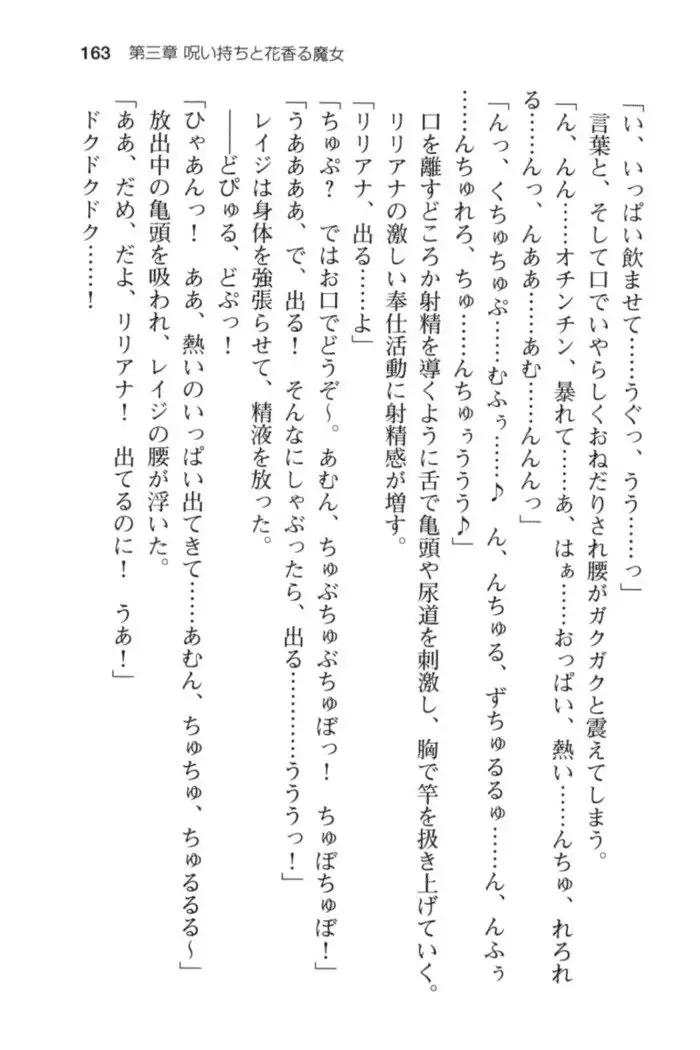 163 第三章 呪い持ちと花香る魔女
「い、いっぱい飲ませて……うぐっ、うう……っ」
言葉と、そして口でいやらしくおねだりされ腰がガクガクと震えてしまう。
「ん、んん……オチンチン、暴れて……あ、はぁ……おっぱい、熱い……んちゅ、れろれ
る……んっ、んああ……あむ……んんんっ」
「んっ、くちゅちゅぷ……むふぅ……♪ ん、んちゅる、ずちゅるるゅ……ん、んふぅ
……んちゅれろ、ちゅ……んちゅぅううう♪」
口を離すどころか射精を導くように舌で亀頭や尿道を刺激し、胸で竿を扱き上げていく。
リリアナの激しい奉仕活動に射精感が増す。
「リリアナ、出る……よ」
「ちゅぷ? ではお口でどうぞ～。あむん、ちゅぶちゅぶちゅぼっ! ちゅぼちゅぼ!」
「うああああ、で、出る! そんなにしゃぶったら、出る…………うううっ!」
レイジは身体を強張らせて、精液を放った。
――どぴゅる、どぷっ!
「ひゃあんっ! ああ、熱いのいっぱい出てきて……あむん、ちゅちゅ、ちゅるるる～」
放出中の亀頭を吸われ、レイジの腰が浮いた。
「ああ、だめ、だよ、リリアナ! 出てるのに! うあ!」
ドクドクドク……!